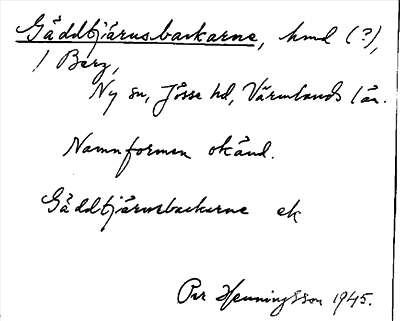 Gäddtjärnsbackarne, hmd (?),
/ Berg,
Ny sn, Jösse hd, Värmlands län.
Namnformen okänd.
Gäddtjärnsbackarne ek
Per Henningsson 1945.